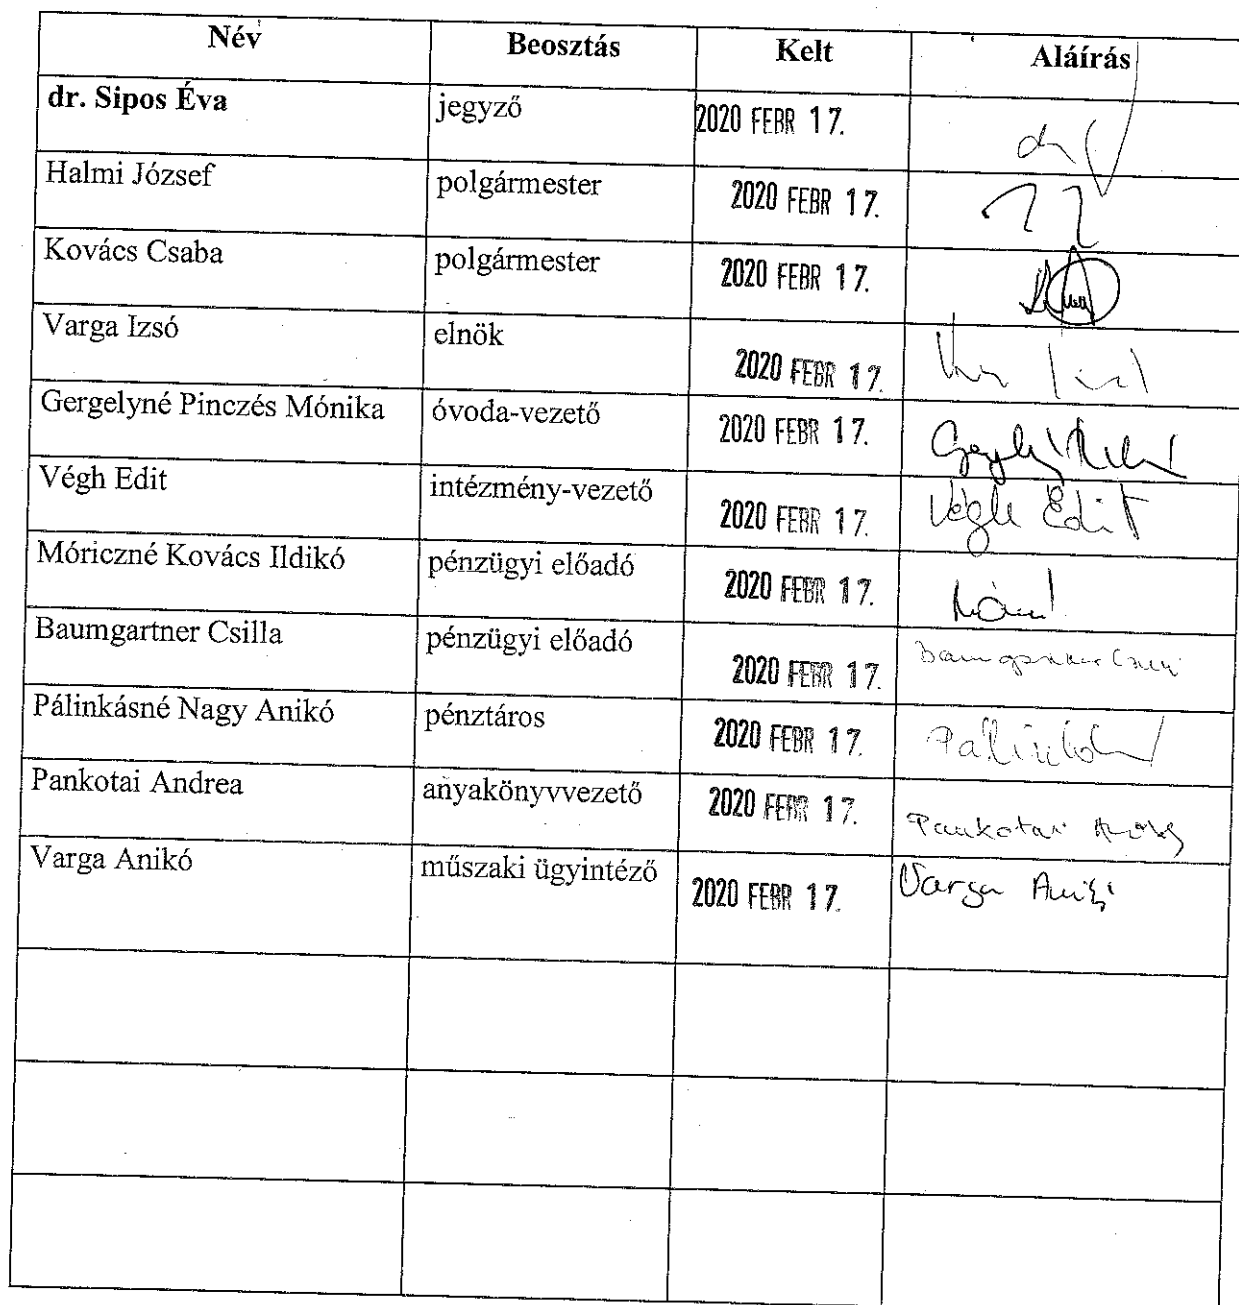 Név Beosztás Kelt Aláírás
dr. Sipos Éva jegyző 2020 FEBR 17.
Halmi József polgármester 2020 FEBR 17.
Kovács Csaba polgármester 2020 FEBR 17.
Varga Izsó elnök 2020 FEBR 17.
Gergelyné Pinczés Mónika óvoda-vezető 2020 FEBR 17.
Végh Edit intézmény-vezető 2020 FEBR 17. Végh Edit
Móriczné Kovács Ildikó pénzügyi előadó 2020 FEBR 17.
Baumgartner Csilla pénzügyi előadó 2020 FEBR 17.
Pálinkásné Nagy Anikó pénztáros 2020 FEBR 17.
Pankotai Andrea anyakönyvvezető 2020 FEBR 17. Pankotai
Varga Anikó műszaki ügyintéző 2020 FEBR 17. Varga Anikó